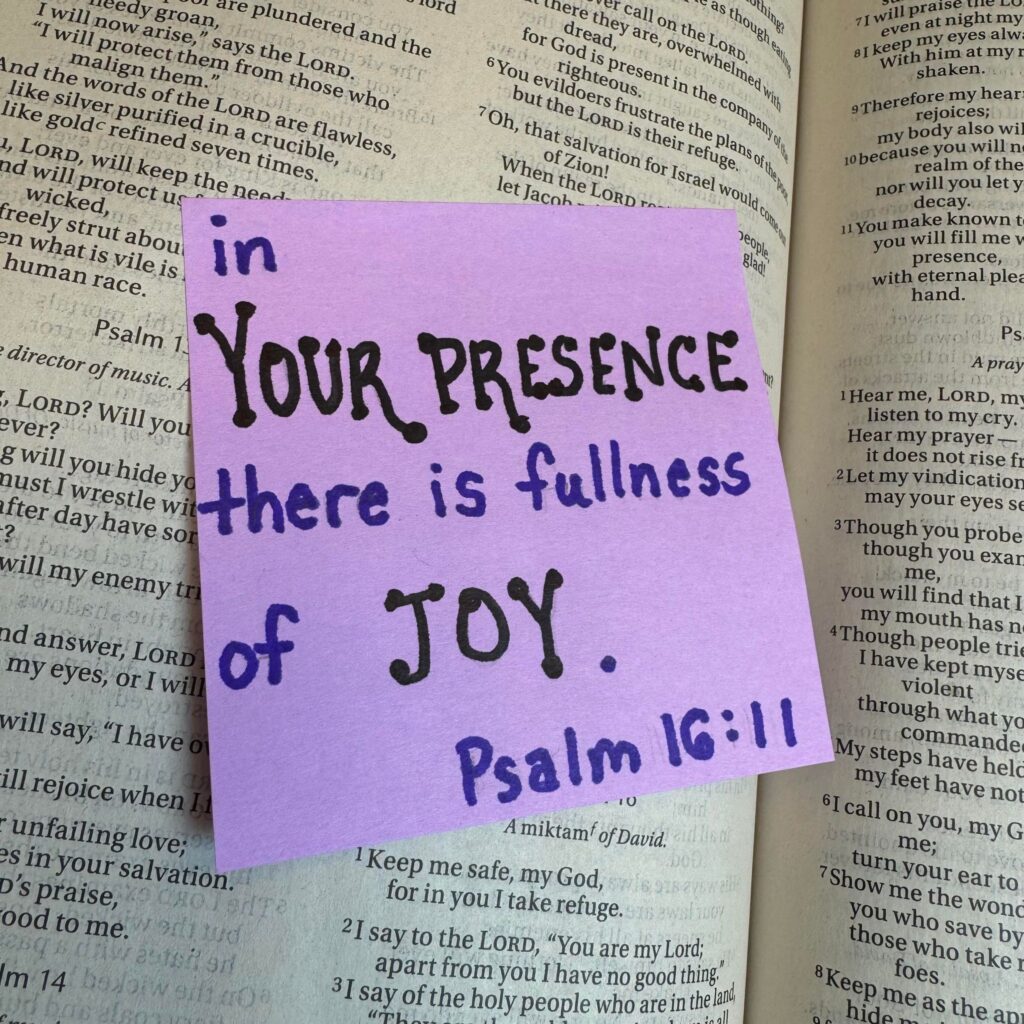 poor are plundered and the
needy groan,
I will now arise," says the LORD.
"I will protect them from those who
malign them."
And the words of the LORD are flawless,
like silver purified in a crucible,
like goldc refined seven times.
LORD, will keep the
will protect us
wicked,
freely strut
what is vile is
human race.
Psalm
director of music. A
LORD? Will you
ever?
will you hide
must I wrestle
after day have
?
will my enemy
answer, LORD
my eyes, or I will
will say, "I have
rejoice when I
unfailing love;
in your salvation.
praise,
good to me.
14
call on the LORD.
as though eating
there they are, overwhelmed with
dread,
for God is present in the company of the
righteous.
6 You evildoers frustrate the plans of the poor,
but the LORD is their refuge.
7 Oh, that salvation for Israel would come out
of Zion!
When the LORD
let Jacob
people,
glad!
in
YOUR PRESENCE
there is fullness
of JOY.
Psalm 16:11
A miktamf of David.
1 Keep me safe, my God,
for in you I take refuge.
2 I say to the LORD, "You are my Lord;
apart from you I have no good thing."
3 I say of the holy people who are in the land,
7 I will praise the
even at night my
8 I keep my eyes
With him at my
shaken.
9 Therefore my
rejoices;
my body also will
10 because you will
realm of the
nor will you let
decay.
11 You make known
you will fill me
presence,
with eternal
hand.
A
1 Hear me, LORD, my
listen to my cry.
Hear my prayer —
it does not rise
2 Let my vindication
may your eyes
3 Though you probe
though you
me,
you will find that I
my mouth has
4 Though people
I have kept
violent
through what
My steps have held
my feet have not
6 I call on you, my
me;
turn your ear to
7 Show me the
you who save by
those who take
foes.
8 Keep me as the
hide